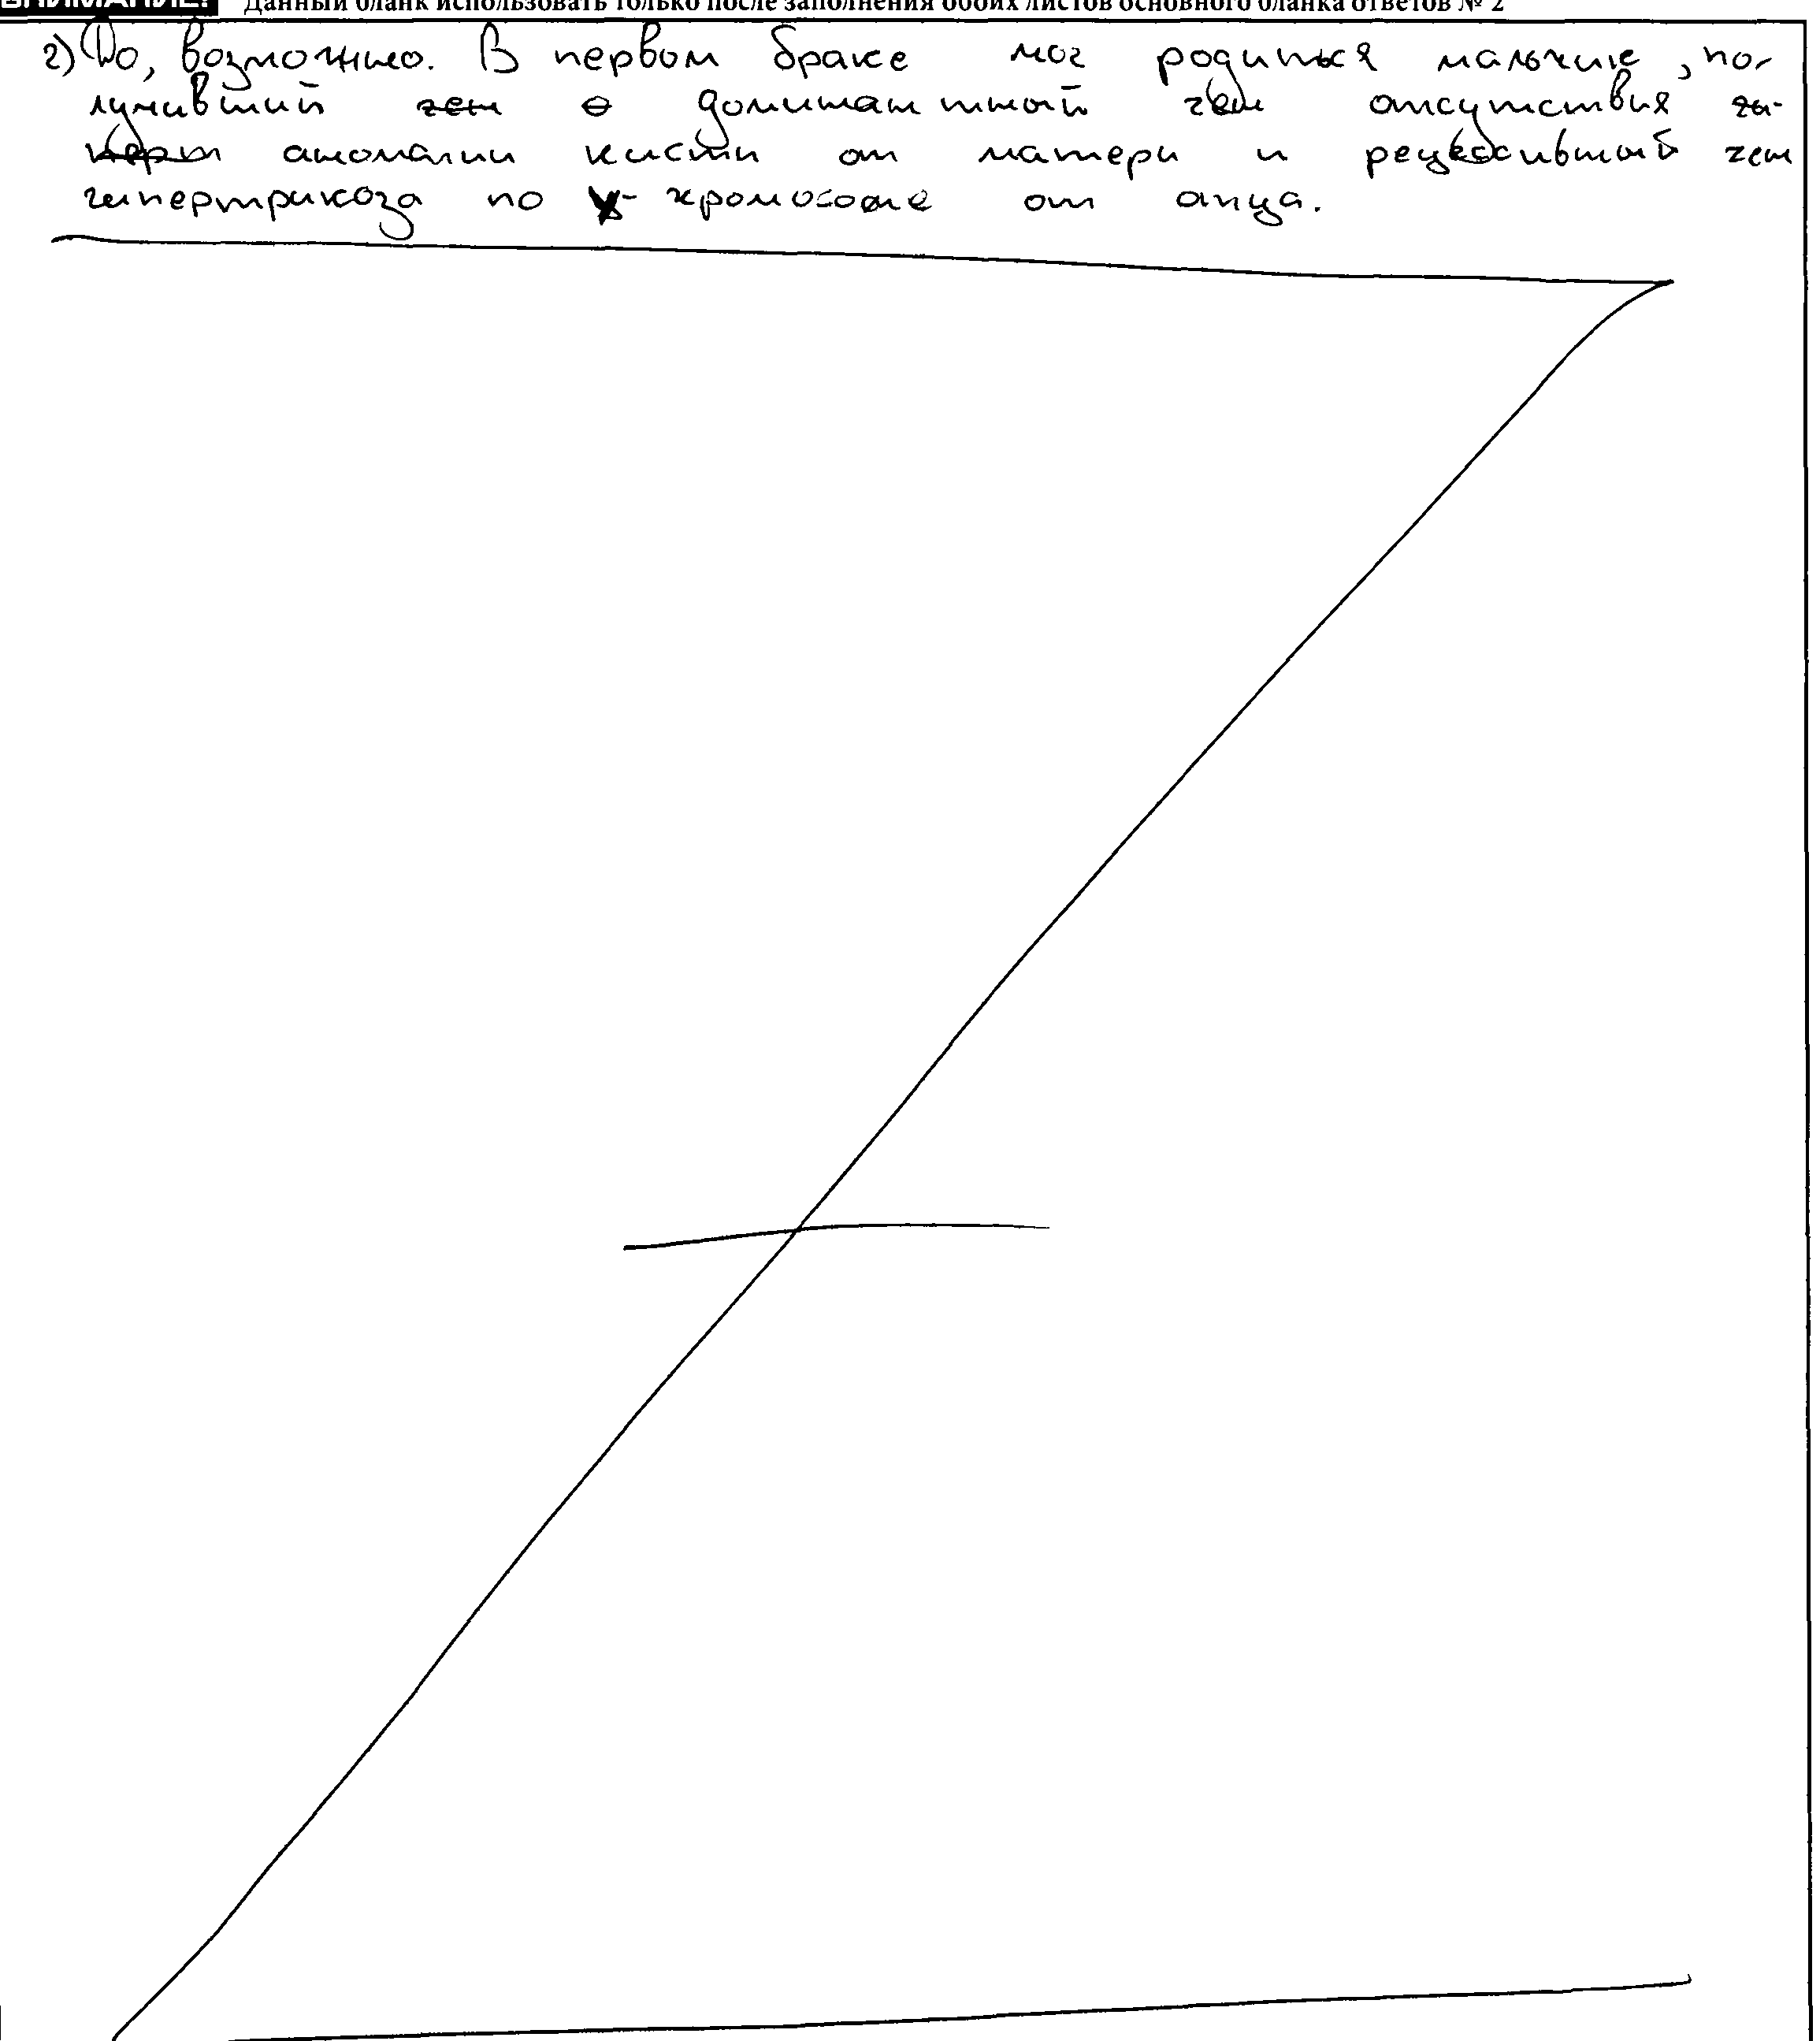 ВНИМАНИЕ! Данный бланк использовать только после заполнения обоих листов основного бланка ответов № 2
2) Да, возможно. В первом браке мог родиться мальчик, по-
лучивший ген о доминантный ген отсутствия ги-
перт аномалии кисти от матери и рецессивный ген
гипертрикоза по Y-хромосоме от отца.